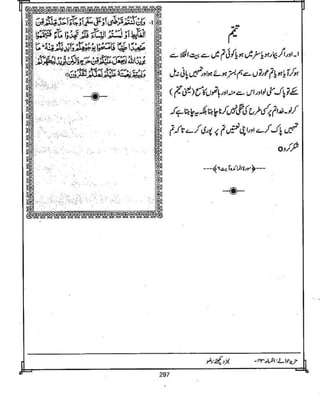 تیمم
۱۔ اور اگر بیمار ہو یا سفر میں ہو یا کوئی تم میں سے بیت الخلا سے
ہو کر آیا ہو یا تم عورتوں سے ہم بستر ہوئے ہو اور تمہیں پانی نہ مل
سکے تو پاک مٹی لو اور اس سے منہ اور ہاتھوں کا مسح (یعنی تیمم)
کرلو۔ خدا تم پر کسی طرح کی تنگی نہیں کرنا چاہتا بلکہ یہ چاہتا ہے کہ
تمہیں پاک کرے اور اپنی نعمتیں تم پر پوری کرے تاکہ تم
شکر کرو
سورۃ المائدہ آیت ۶
۱- وَإِنْ كُنْتُمْ مَرْضَى أَوْ عَلَى سَفَرٍ أَوْ جَاءَ أَحَدٌ مِنْكُمْ مِنَ
الْغَائِطِ أَوْ لَمَسْتُمُ النِّسَاءَ فَلَمْ تَجِدُوا مَاءً فَتَيَمَّمُوا
صَعِيدًا طَيِّبًا فَامْسَحُوا بِوُجُوهِكُمْ وَأَيْدِيكُمْ مِنْهُ مَا
يُرِيدُ اللَّهُ لِيَجْعَلَ عَلَيْكُمْ مِنْ حَرَجٍ وَلَكِنْ يُرِيدُ لِيُطَهِّرَكُمْ
وَلِيُتِمَّ نِعْمَتَهُ عَلَيْكُمْ لَعَلَّكُمْ تَشْكُرُونَ
مزید حوالے: النساء ۴۳-
دیکھئے: وضو
297